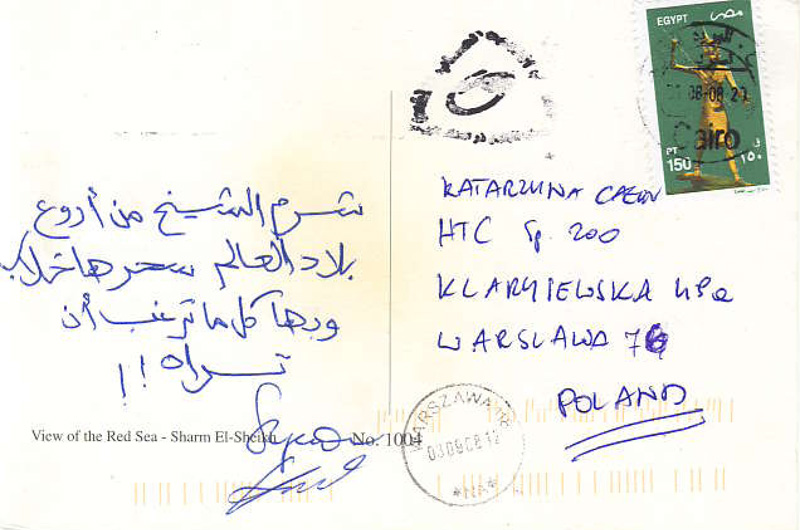 شرم الشيخ من أروع
بلاد العالم سحرها خلاب
وبها كل ما ترغب أن
تراه !!
View of the Red Sea - Sharm El-Sheikh
No. 1004
EGYPT مصر
08-08 20
Cairo
PT 150
١٥٠
KATARZYNA
HTC Sp. 200
WARSLAWA
POLAND
WARSZAWA
030908 12